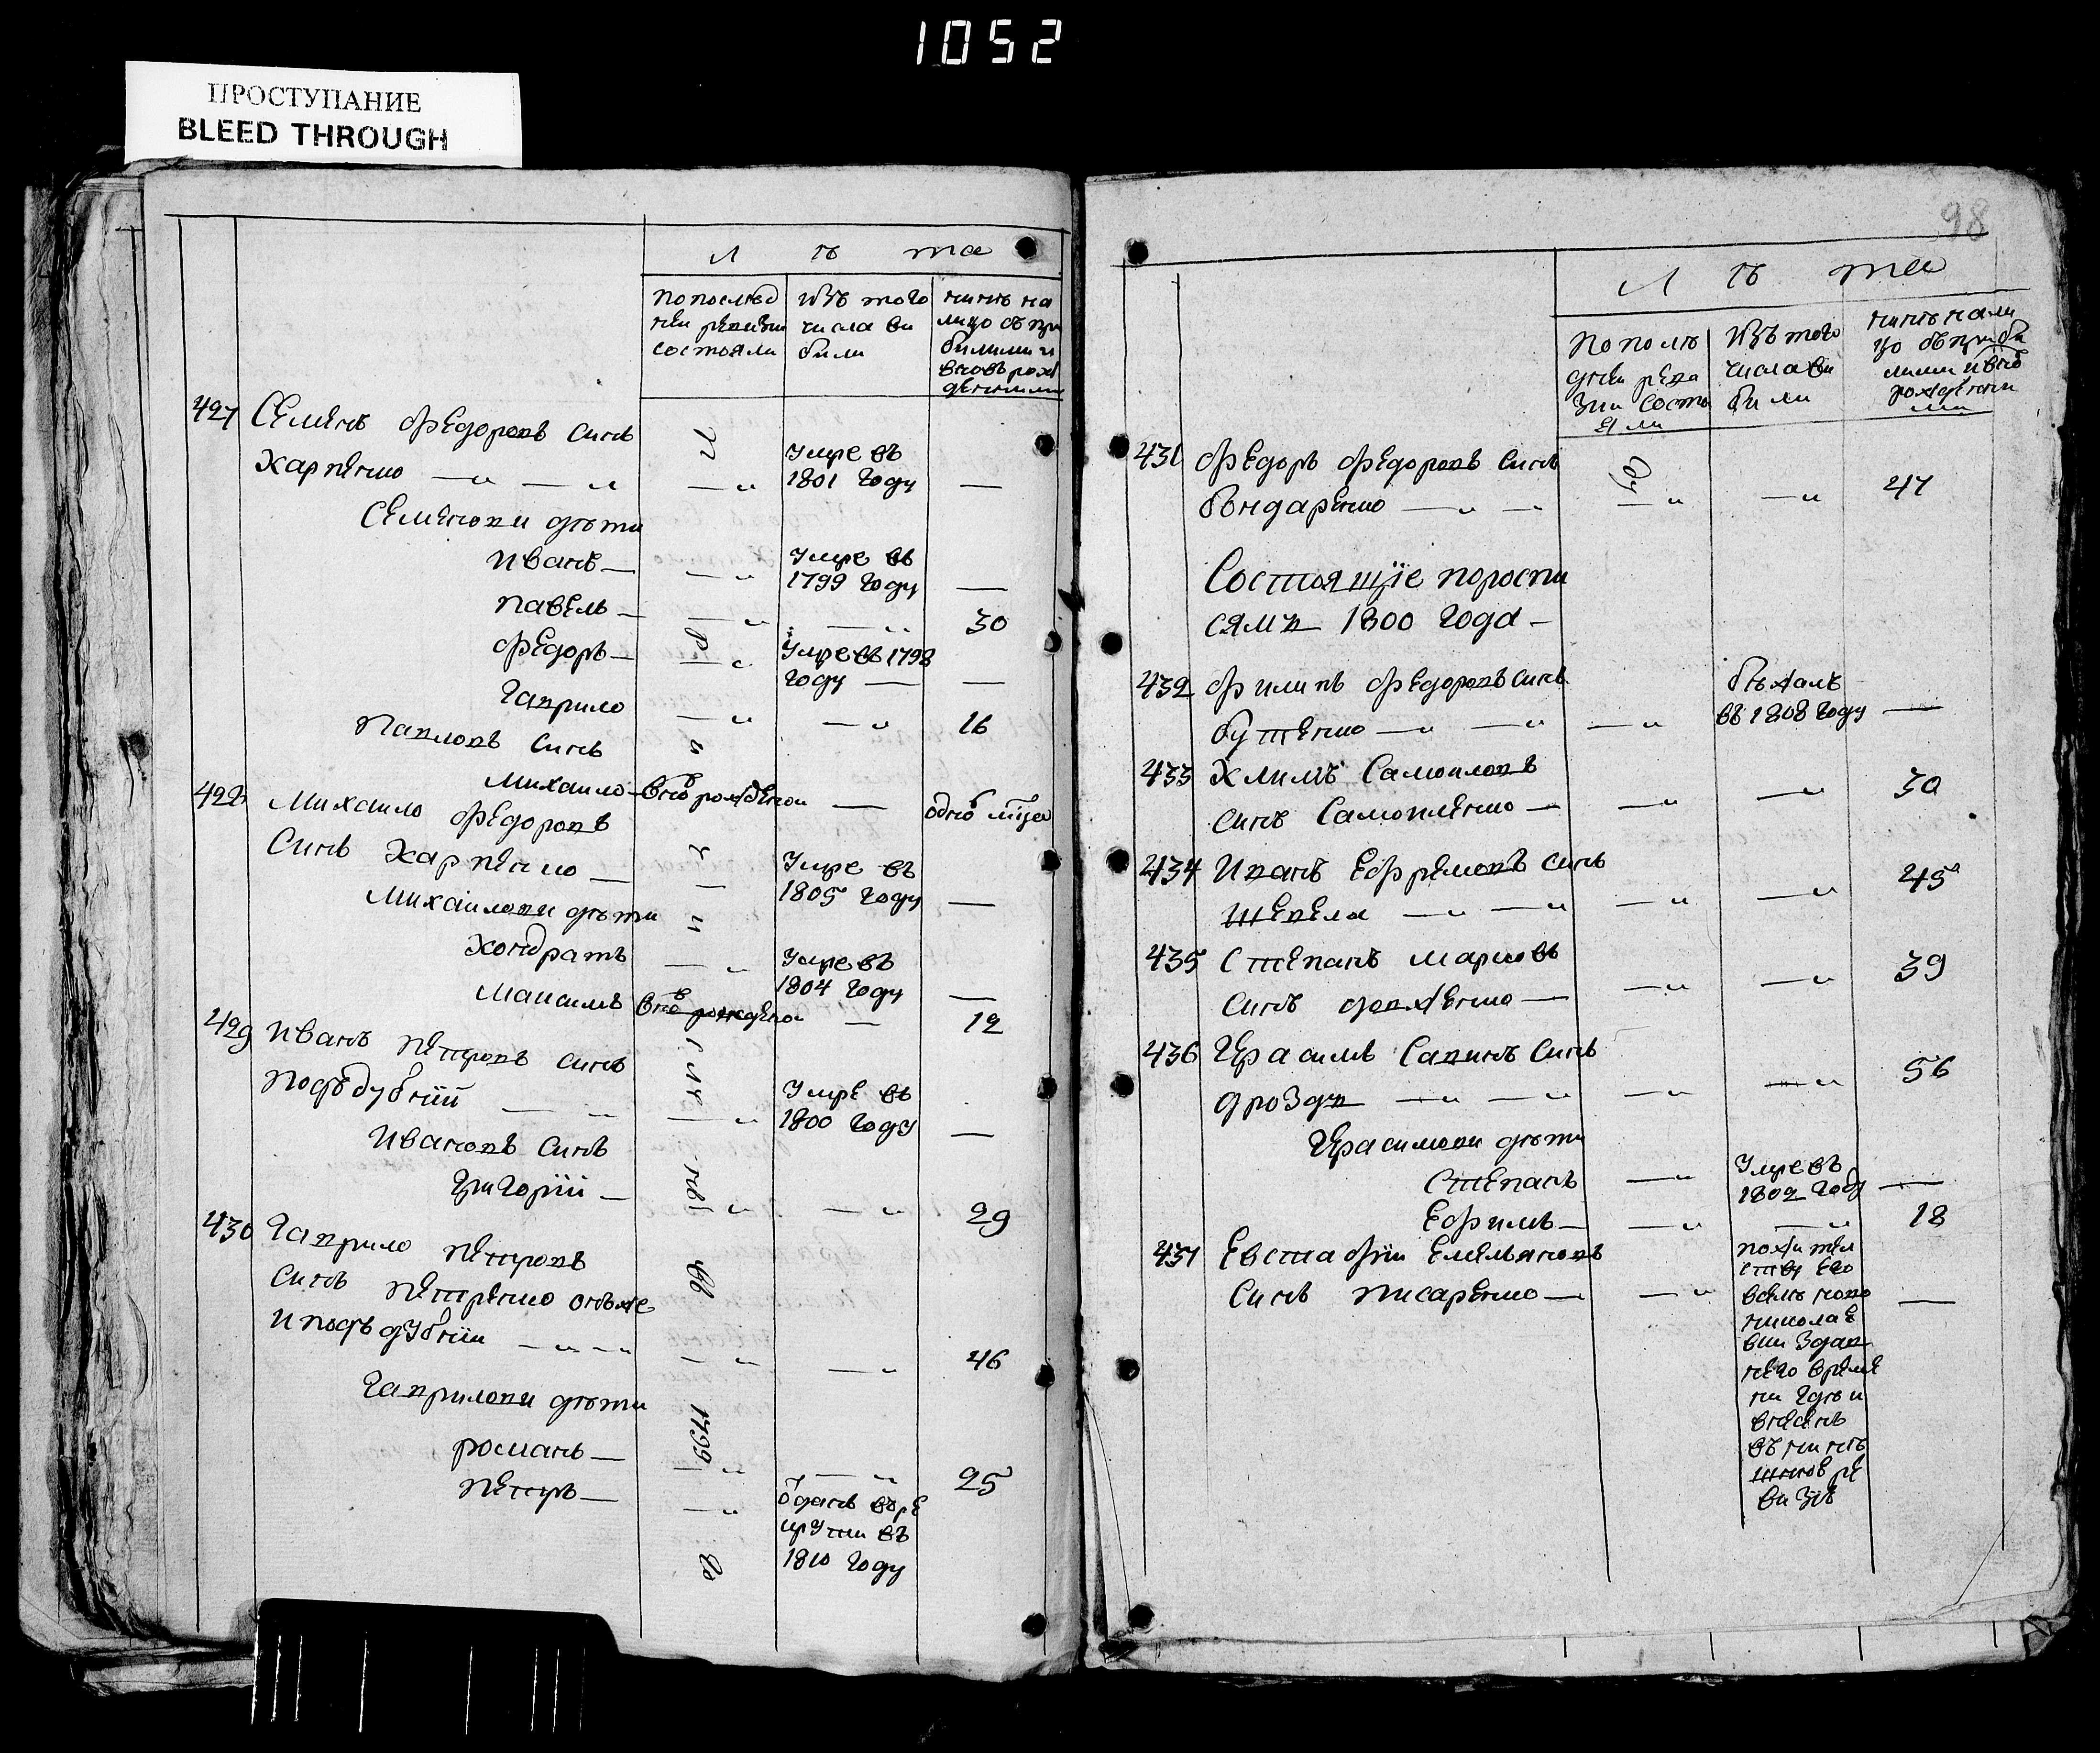 1052
ПРОСТУПАНИЕ
BLEED THROUGH
Л ѣ та
По послѣд
ней ревизіи
состояли
Изъ того
числа ви
били
нинѣ на
лицо съ при
билими и
вновь рож
денними
427 Семенъ Федоровъ синъ
Харченко
Умре въ
1801 году
Семенови дѣти
Иванъ
Умре въ
1799 году
Павелъ 30
Федоръ
Умре въ 1798
году
Гаврило 16
Павловъ синъ
Михаило вновь рожденои
428 Михаило Федоровъ
Синъ Харченко
Умре въ
1805 году
Михаилови дѣти
Кондратъ
Умре въ
1804 году
Максимъ вновь рожденои 12
429 Иванъ Петровъ синъ
Поддубній
Умре въ
1800 году
Ивановъ синъ
Григорій 29
430 Гаврило Петровъ
Синъ Петренко онъ же
и поддубній 46
Гаврилови дѣти
1799
Романъ 25
Петръ
Отданъ въ ре
крути въ
1810 году
98
Л ѣ та
По послѣ
дней реви
зіи состо
яли
Изъ того
числа ви
били
нинѣ на ли
цо съ приби
лими и вновь
рожденни
ми
431 Федоръ Федоровъ синъ
Бондаренко 47
Состоящіе по ропи
сямъ 1800 года
432 Филипъ Федоровъ синъ
Бутенко
бѣжалъ
въ 1808 году
433 Климъ Самоиловъ
синъ Самойленко 30
434 Иванъ Ефремовъ синъ
Шевела 45
435 Степанъ Марковъ
синъ Довженко 39
436 Герасимъ Савинъ синъ
Дроздъ 56
Герасимови дѣти
Степанъ
Умре въ
1802 году
Ефимъ 18
437 Евстафій Емельяновъ
Синъ Писаренко
по жител
ству его
николае
ви здав
него време
ни гдѣ и
въ нинѣ
шнюю ре
визію